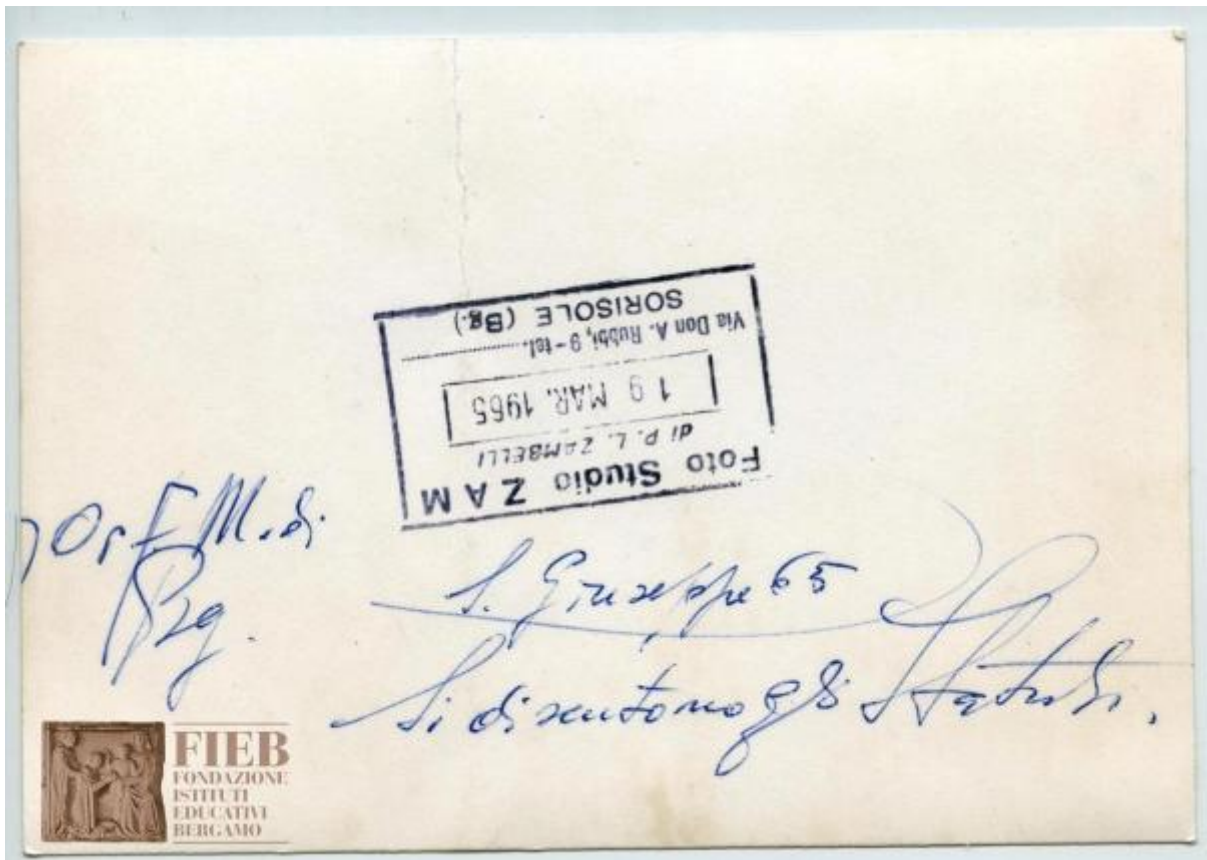 Foto Studio ZAM
di P. L. ZAMBELLI
19 MAR. 1965
Via Don A. Rubbi, 9 - tel.
SORISOLE (Bg.)
Orf. M. di
Bg.
S. Giuseppe 65
Si discutono gli Statuti.
FIEB
FONDAZIONE
ISTITUTI
EDUCATIVI
BERGAMO